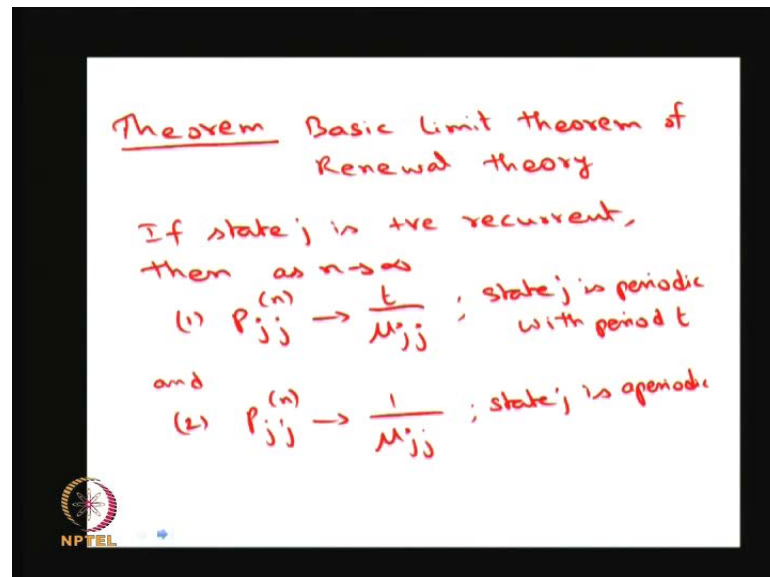 Theorem Basic limit theorem of
Renewal theory
If state j is +ve recurrent,
then as n→∞
(1) P_{jj}^{(n)} → t/μ_{jj} ; state j is periodic
with period t
and
(2) P_{jj}^{(n)} → 1/μ_{jj} ; state j is aperiodic
NPTEL